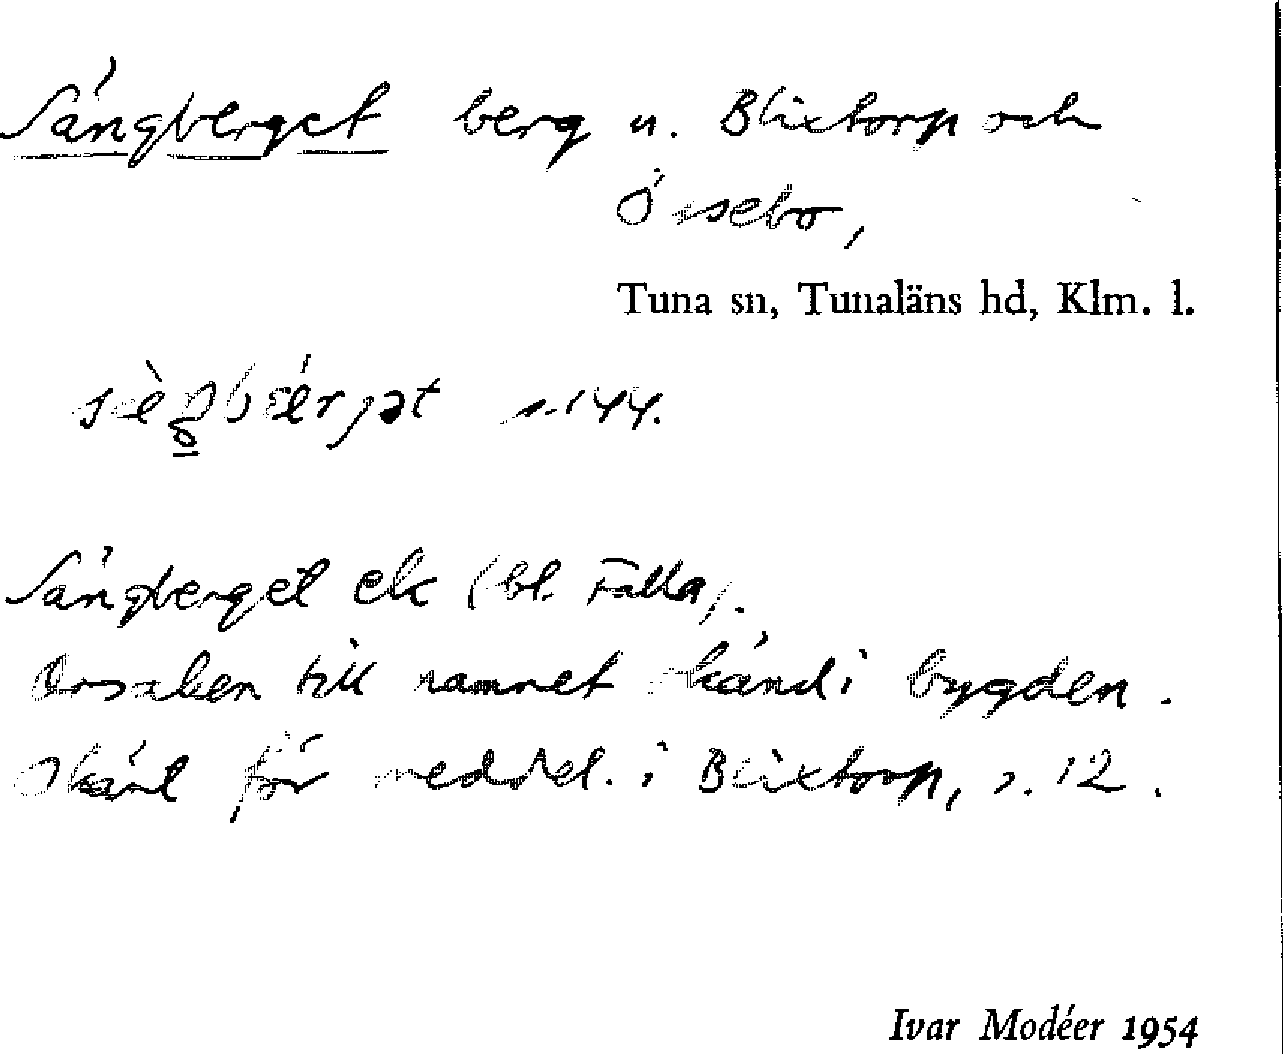 Sängberget berg n. Blixtorp och
Össebo,
Tuna sn, Tunaläns hd, Klm. l.
s. 144.
Sängberget ek (bl. Falla).
Orsaken till namnet okänd i bygden.
Okänt för meddel. i Blixtorp, s. 12.
Ivar Modéer 1954